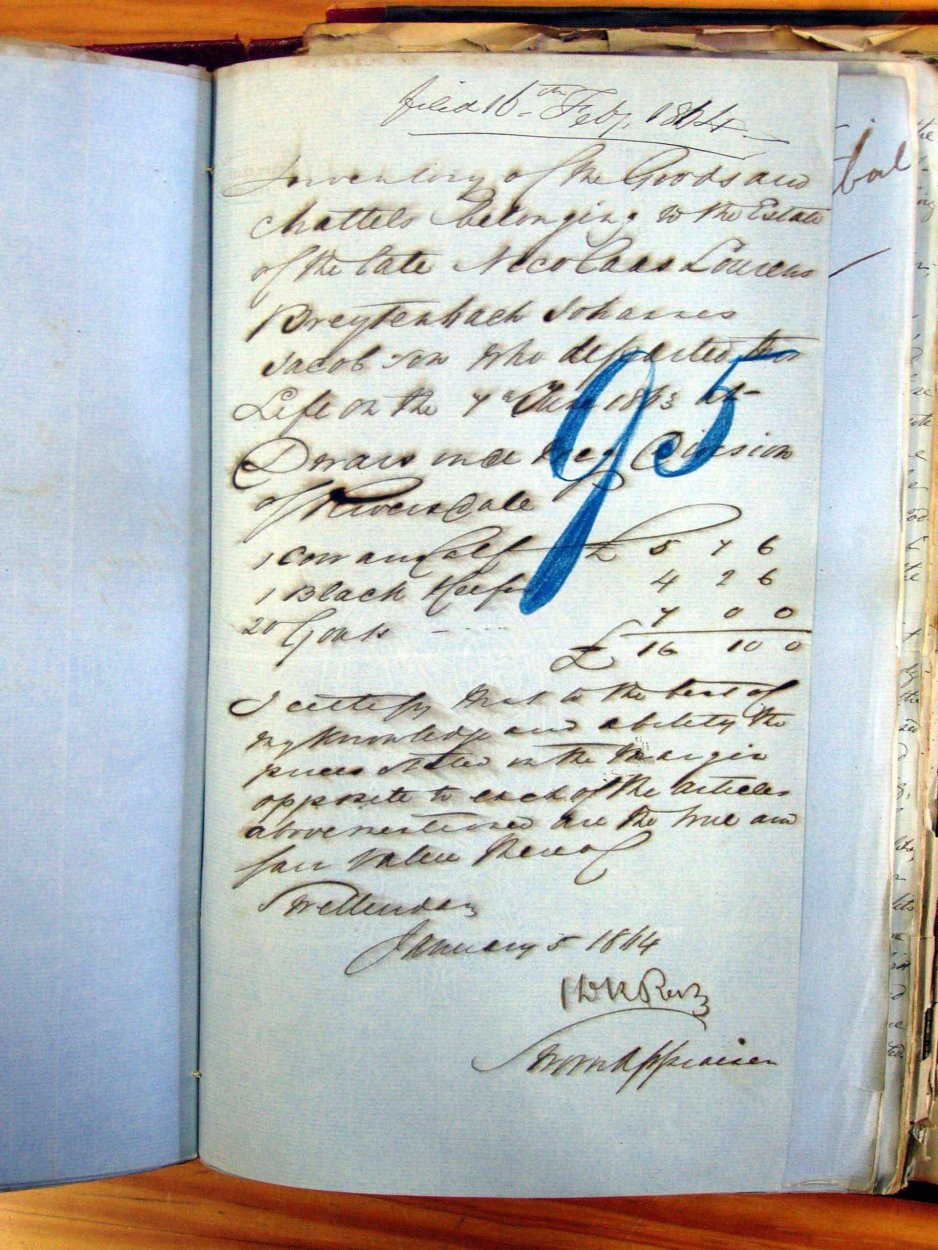 filed 16th Feby. 1864.
Inventory of the Goods and
Chattels belonging to the Estate
of the late Nicolaas Lourens
Breytenbach Johannes
Jacob son who departed this
Life on the 7th 1863 at
Division
of Riversdale
1 Cow and Calf £ 5 7 6
1 Black Heifer 4 2 6
20 Goats - - - 7 0 0
£ 16 10 0
95
I certify that to the best of
my knowledge and ability the
prices stated in the Margin
opposite to each of the articles
abovementioned are the true and
fair value thereof
Swellendam
January 5 1864
Sworn Appraiser